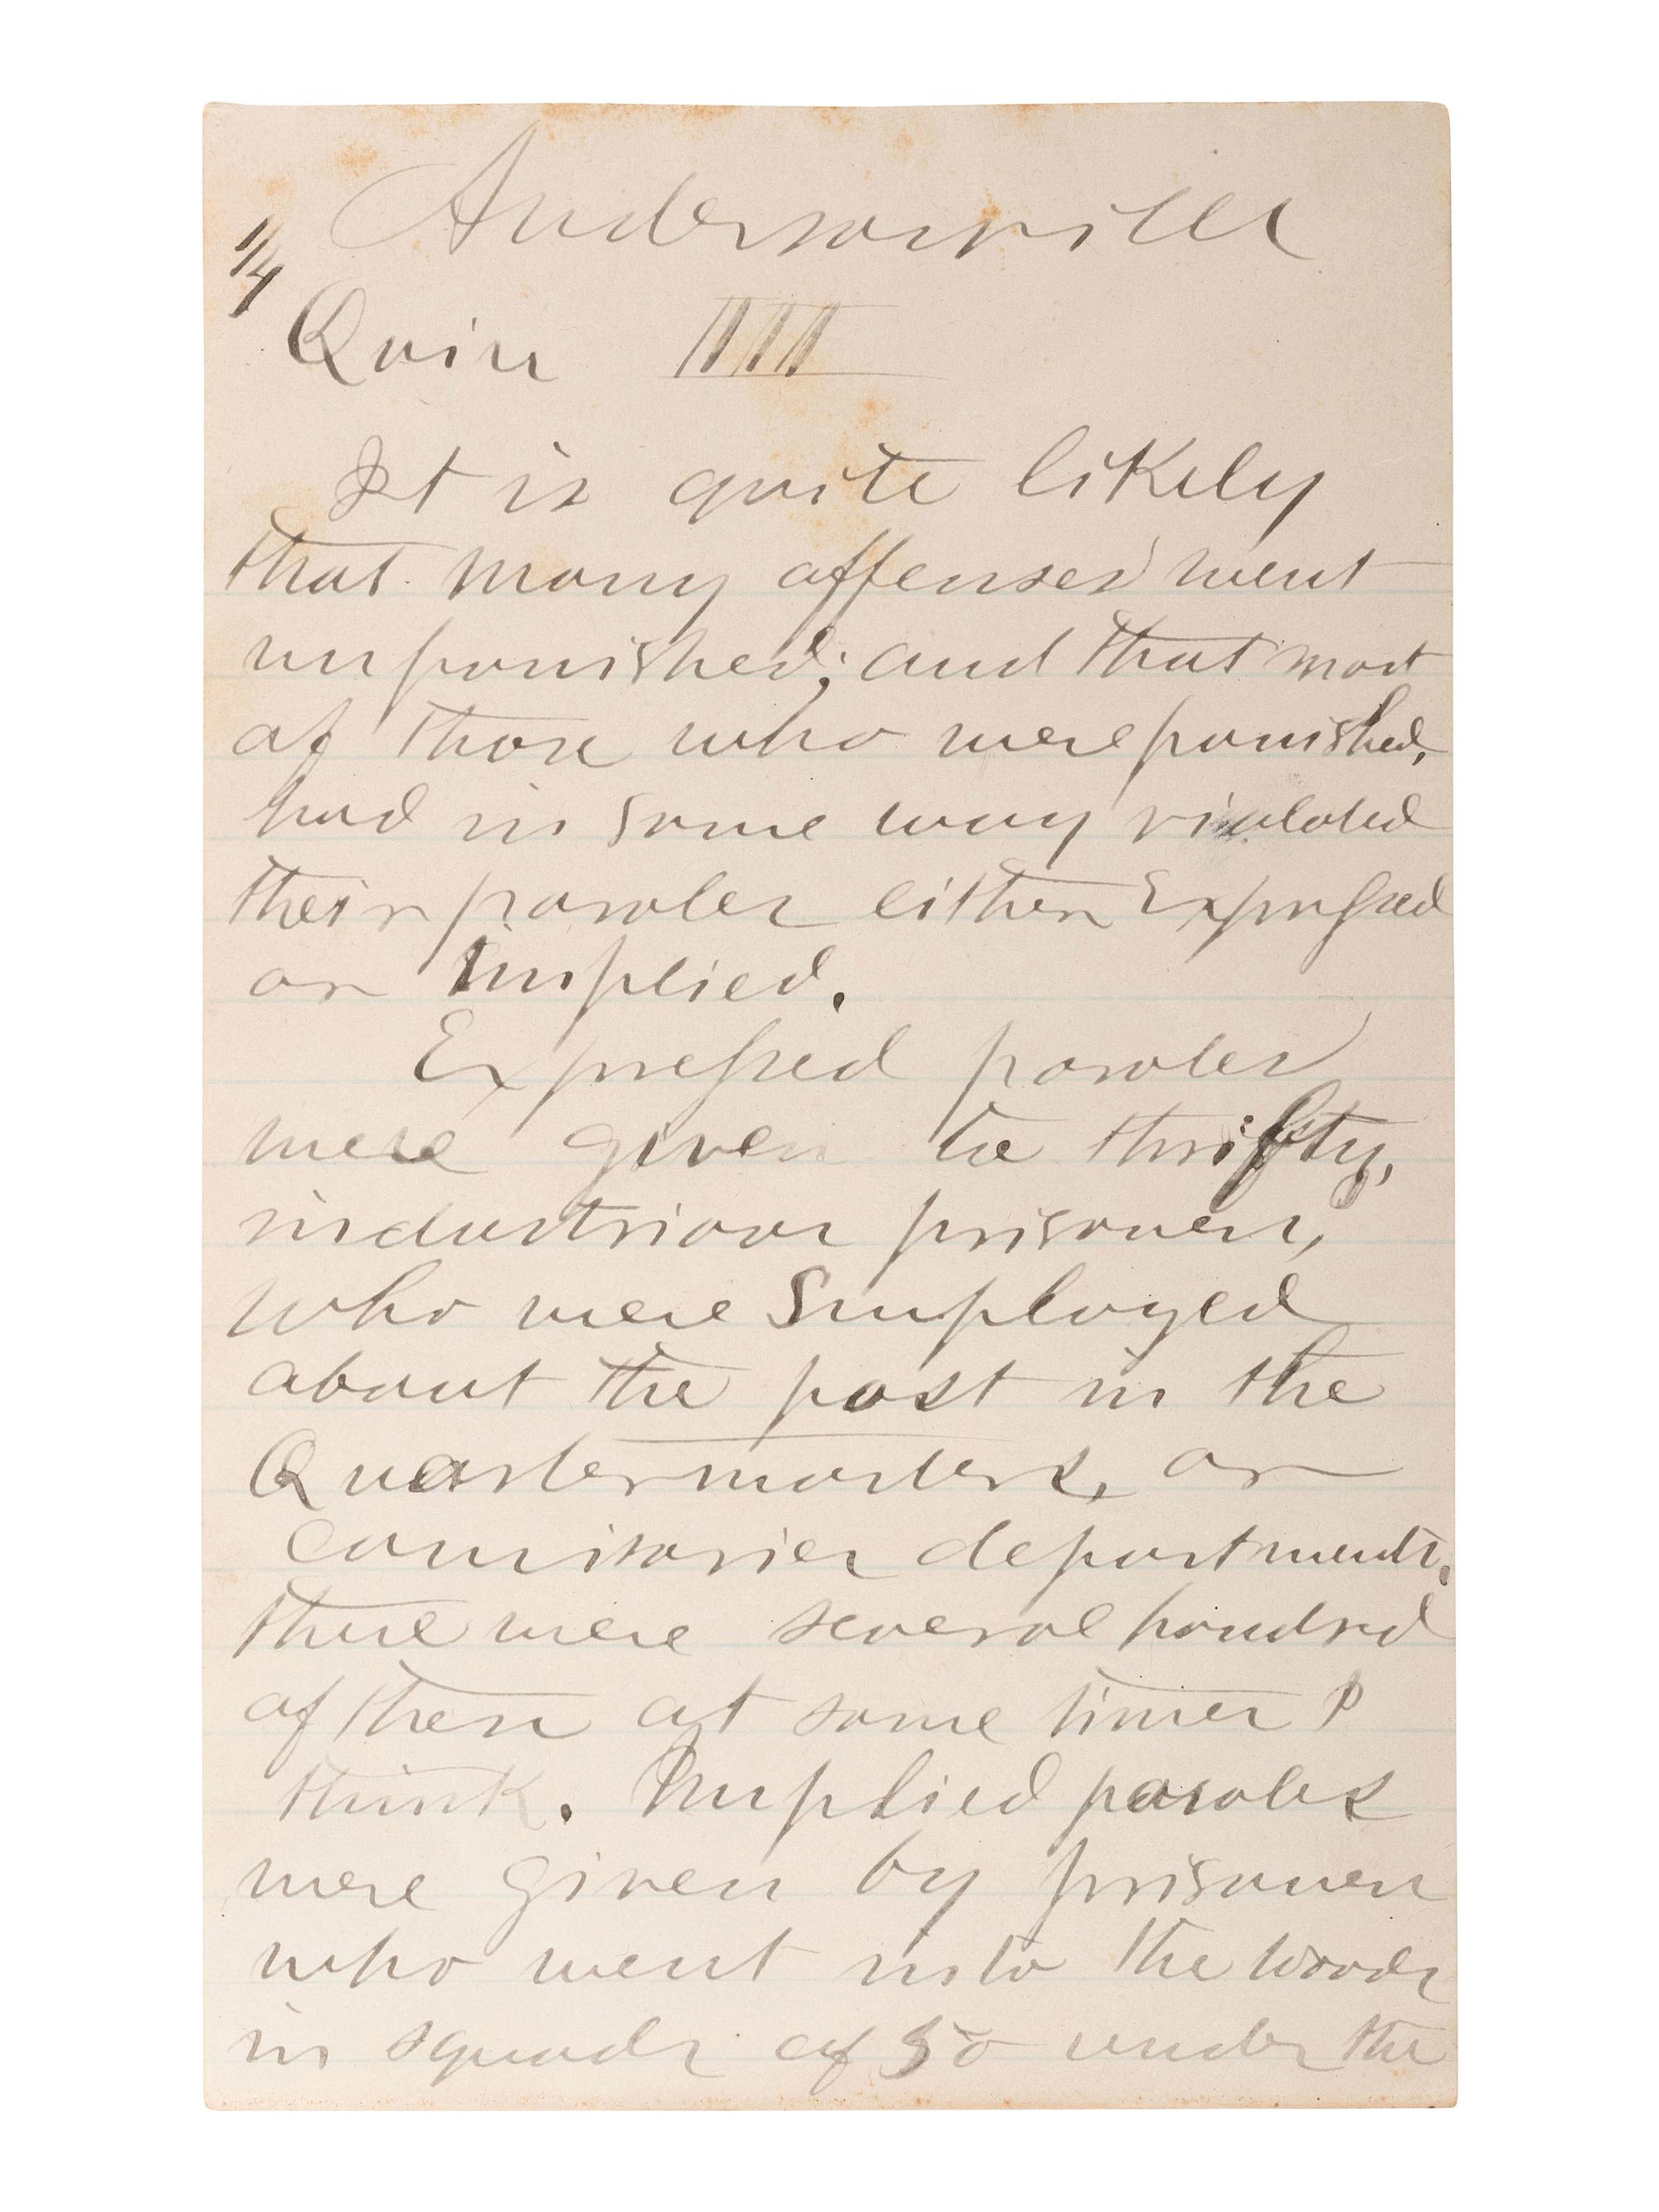 Andersonville
1/4
Quire IIIII
It is quite likely
that many offenses went
unpunished; and that most
of those who were punished,
had in some way violated
their paroles either Expressed
or Implied.
Expressed paroles
were given to thrifty,
industrious prisoners,
who were Employed
about the post in the
Quartermasters, or
comisaries departments.
there were several hundred
of them at some times I
think. Implied paroles
were given by prisoners
who went into the woods
in squads of 50 under the